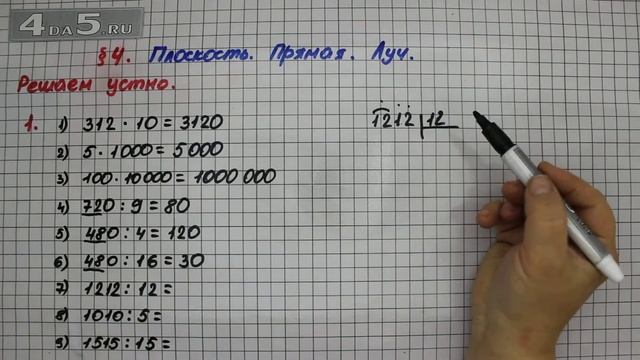 4DA5.RU
§4. Плоскость. Прямая. Луч.
Решаем устно.
1. 1) 312 · 10 = 3120
2) 5 · 1000 = 5000
3) 100 · 10000 = 1000 000
4) 720 : 9 = 80
5) 480 : 4 = 120
6) 480 : 16 = 30
7) 1212 : 12 =
8) 1010 : 5 =
9) 1515 : 15 =
1212 12